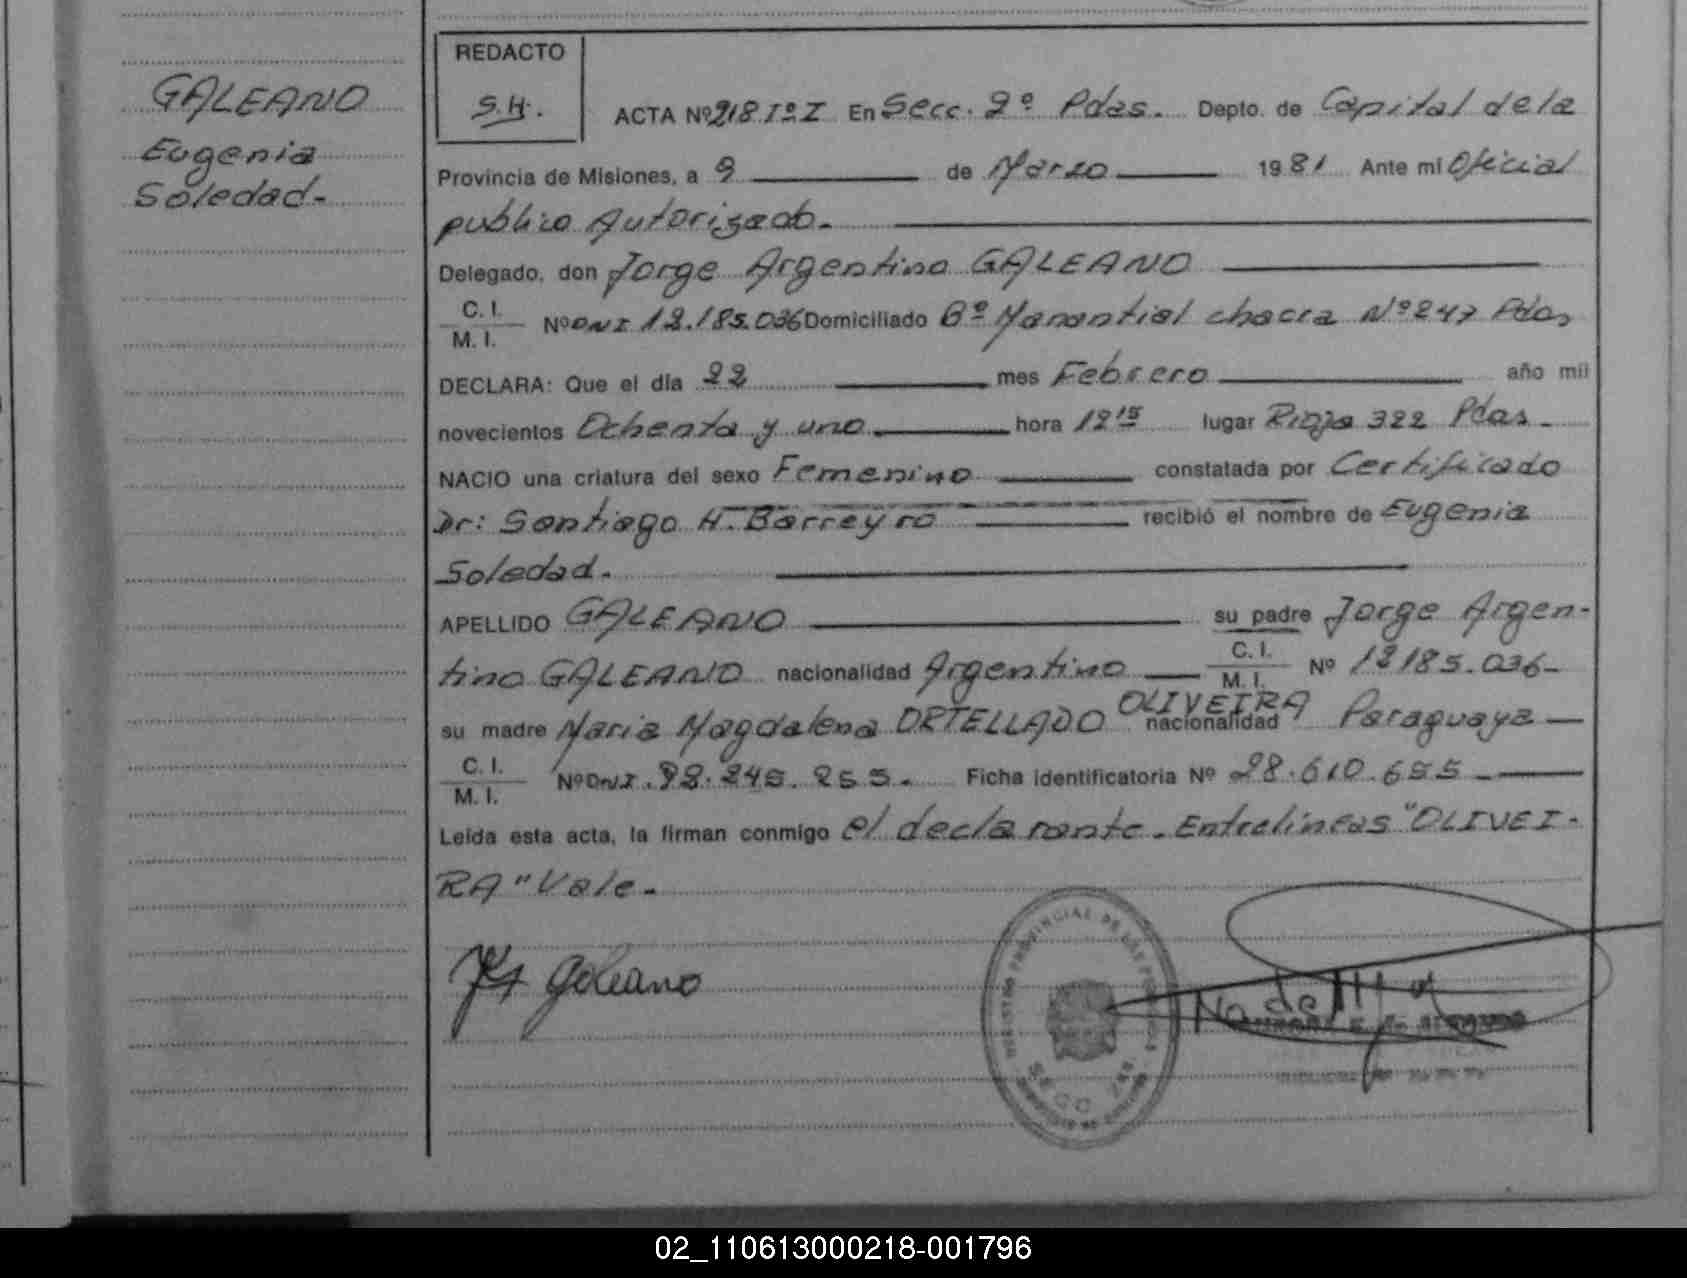 GALEANO
Eugenia
Soledad-
REDACTO
S.H.
ACTA Nº 218 Tº I En Secc. 2º Pdas. Depto. de Capital de la
Provincia de Misiones, a 9 de Marzo 1981 Ante mi Oficial
publico Autorizado.
Delegado, don Jorge Argentino GALEANO
C. I.
M. I.
Nº DNI 12.185.036 Domiciliado Bº Manantial chacra Nº 247 Pdas
DECLARA: Que el día 22 mes Febrero año mil
novecientos Ochenta y uno hora 12 15 lugar Rioja 322 Pdas.
NACIO una criatura del sexo Femenino constatada por Certificado
Dr: Santiago H. Barreyro recibió el nombre de Eugenia
Soledad.
APELLIDO GALEANO su padre Jorge Argen-
tino GALEANO nacionalidad Argentino C. I. M. I. Nº 12185.036-
su madre Maria Magdalena ORTELLADO OLIVEIRA nacionalidad Paraguaya
C. I.
M. I.
Nº DNI. 92.245.255. Ficha identificatoria Nº 28.610.655-
Leída esta acta, la firman conmigo el declarante. Entrelineas "OLIVEI-
RA" Vale.
Galeano
02_110613000218-001796